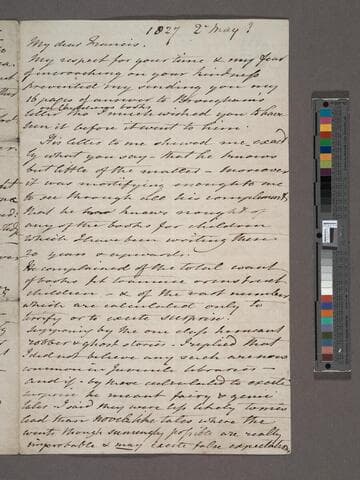 1827 2d May?
My dear Francis.
My respect for your time & my fear
of incroaching on your kindness
prevented my sending you my
16 pages of answer to Brougham's
on Children's books
letter tho I much wished you to have
seen it before it went to him.
His letter to me shewed me exact
ly what you say - that he knows
but little of the matter - moreover
it was mortifying enough to me
to see through all his compliments
that he knows nought of
any of the books for children
which I have been writing these
20 years & upwards.
He complained of the total want
of books fit to amuse or interest
children - & of the vast number
which are calculated only to
horrify or to excite surprise.
Supposing by the one class he meant
robber & ghost stories I replied that
I did not believe any such are now
common in juvenile libraries -
and if by those calculated to excite
surprise he meant fairy & genii
tales I said they were less likely to mis
lead than novelike tales where the
events though seemingly possible are really
improbable & may excite false expectation